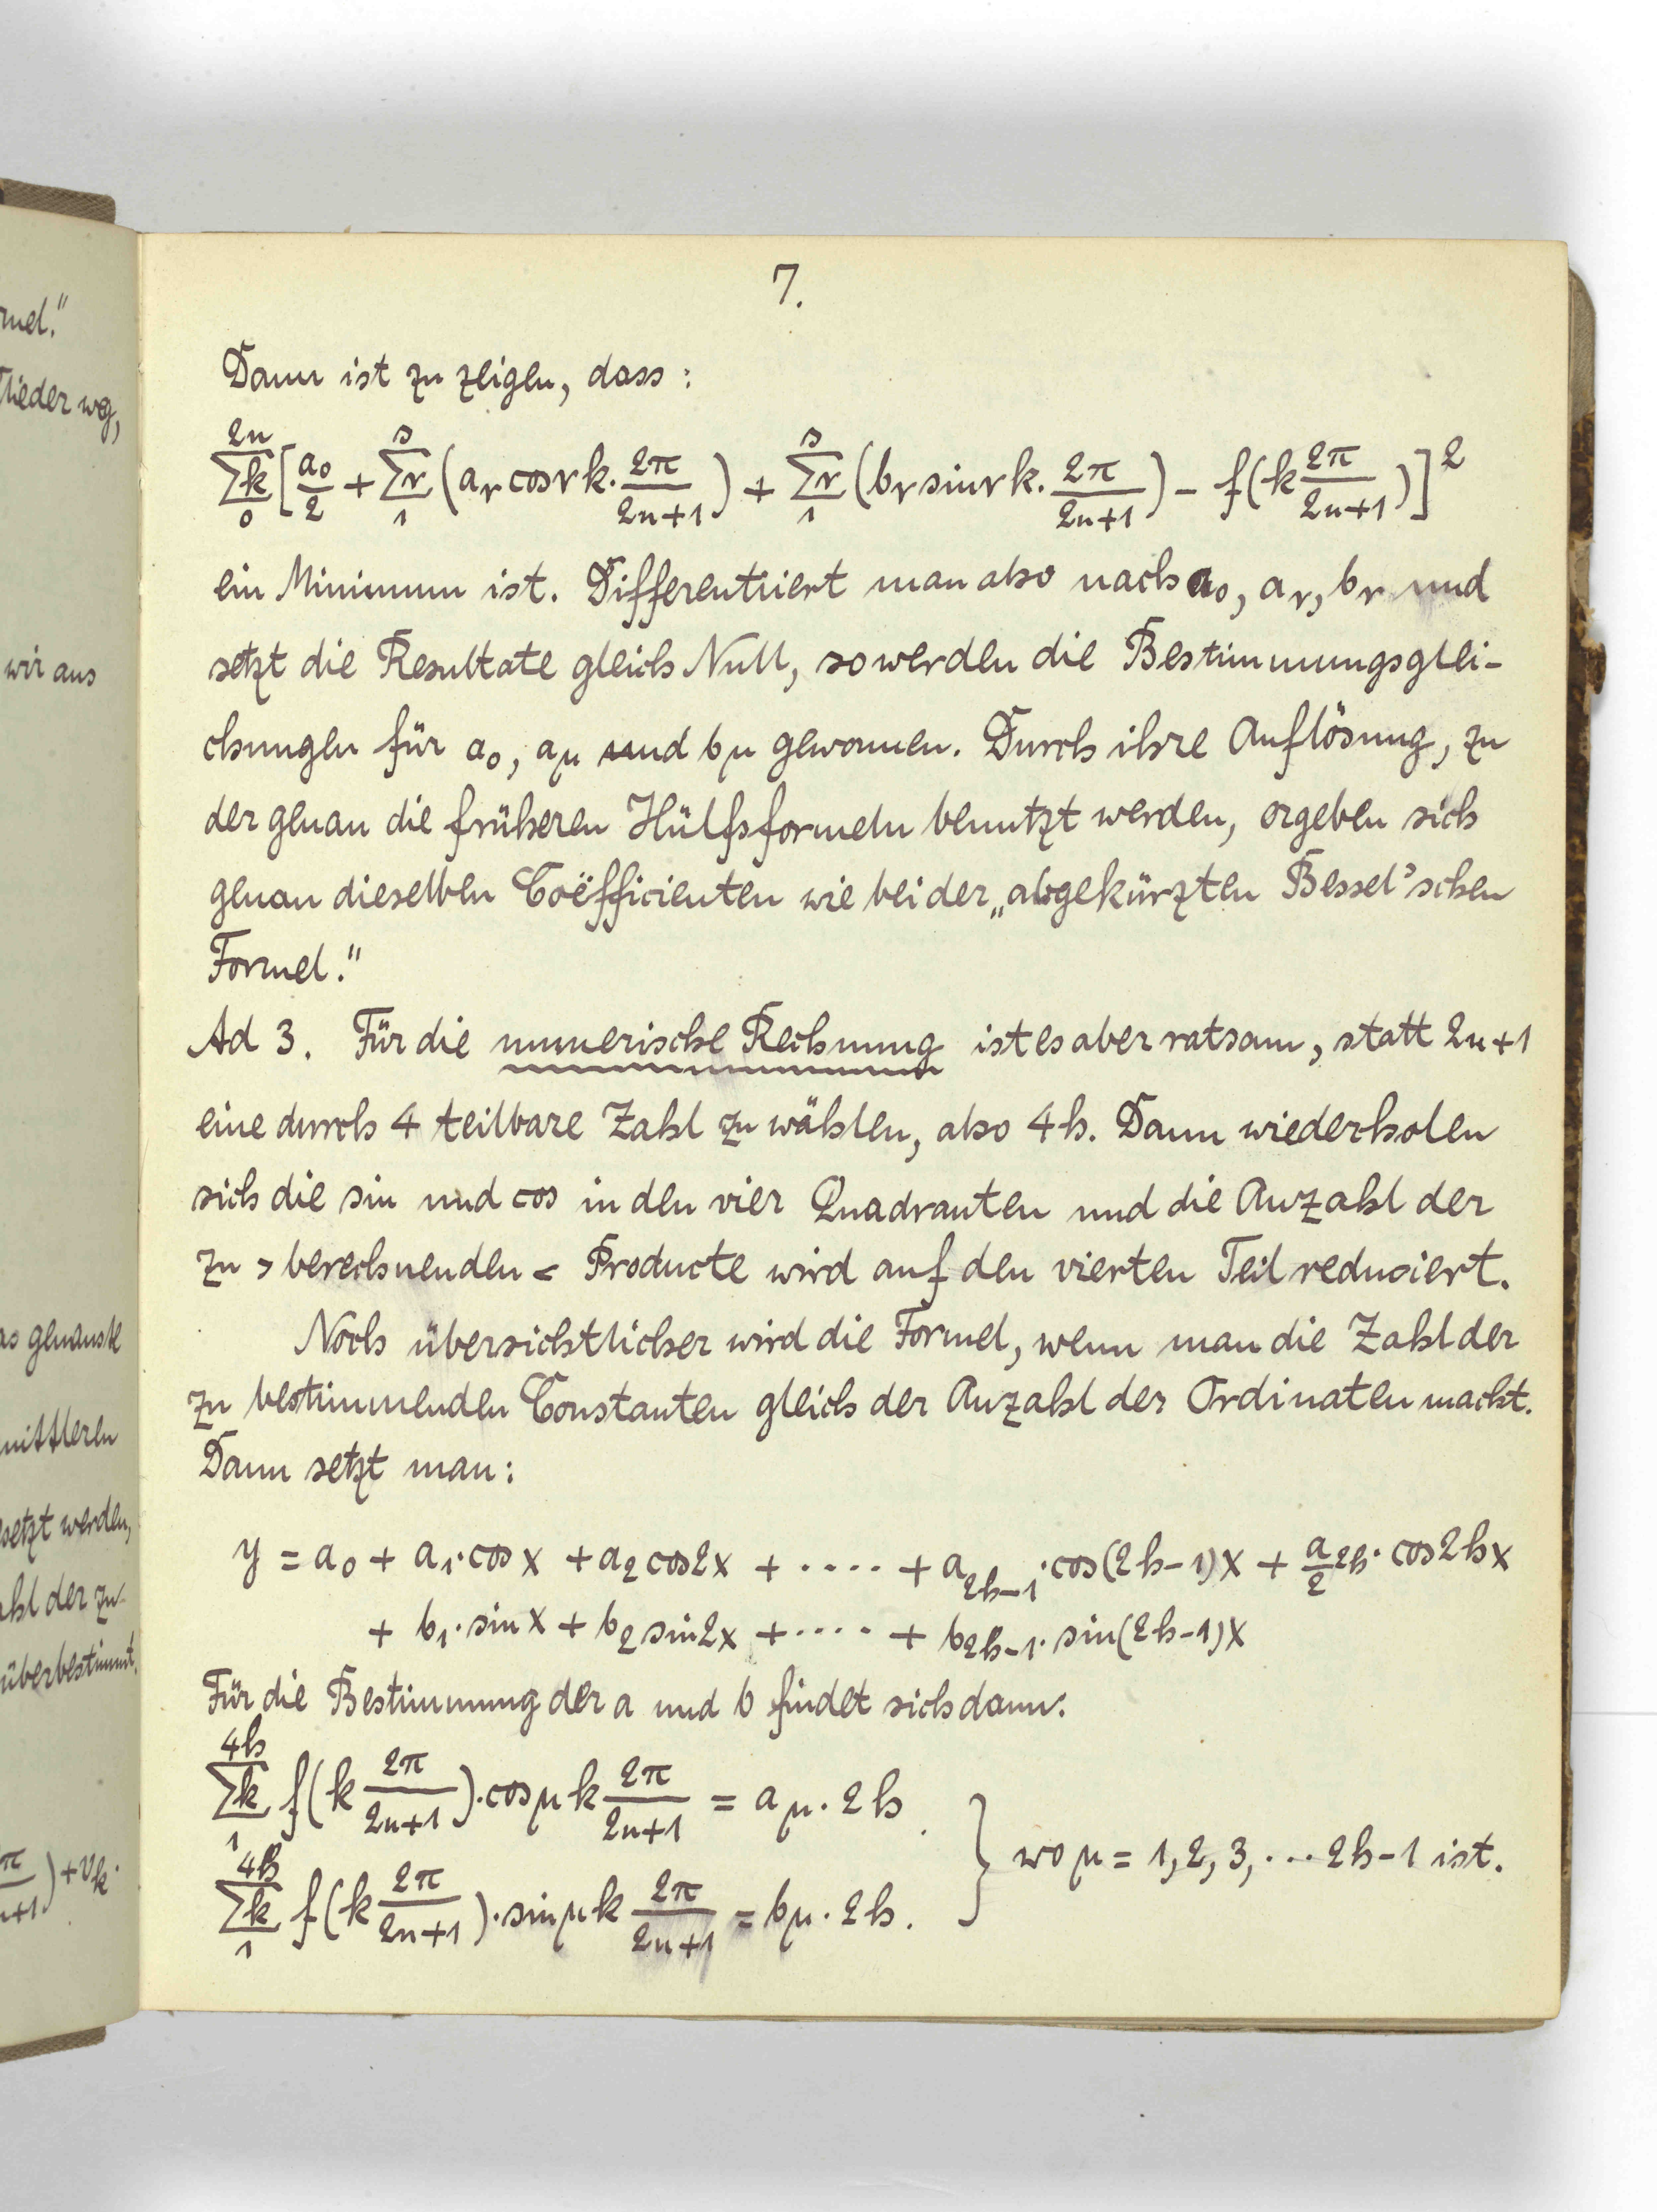 rmel."
Glieder weg,
wir aus
as genauste
mittleren
esetzt werden,
ahl der zu
überbestimmt.
π/n+1) + v_k.
7.
Dann ist zu zeigen, dass:
2n Σk 0 [a₀/2 + s Σr 1 (a_r cos r k · 2π/2n+1) + s Σr 1 (b_r sin r k · 2π/2n+1) − f(k 2π/2n+1)]²
ein Minimum ist. Differentiiert man also nach a₀, a_r, b_r und
setzt die Resultate gleich Null, so werden die Bestimmungsglei-
chungen für a₀, a_μ und b_μ gewonnen. Durch ihre Auflösung, zu
der genau die früheren Hülfsformeln benutzt werden, ergeben sich
genau dieselben Coëfficienten wie bei der „abgekürzten Bessel'schen
Formel."
Ad 3. Für die numerische Rechnung ist es aber ratsam, statt 2n+1
eine durch 4 teilbare Zahl zu wählen, also 4h. Dann wiederholen
sich die sin und cos in den vier Quadranten und die Anzahl der
zu > berechnenden < Producte wird auf den vierten Teil reduciert.
Noch übersichtlicher wird die Formel, wenn man die Zahl der
zu bestimmenden Constanten gleich der Anzahl der Ordinaten macht.
Dann setzt man:
y = a₀ + a₁·cos x + a₂ cos 2x + ···· + a_{2h−1}·cos(2h−1)x + a/2 _{2h}· cos 2h x
+ b₁·sin x + b₂ sin 2x + ···· + b_{2h−1}· sin(2h−1)x
Für die Bestimmung der a und b findet sich dann:
4h Σk 1 f(k 2π/2n+1)·cos μ k 2π/2n+1 = a_μ · 2h.
4h Σk 1 f(k 2π/2n+1)·sin μ k 2π/2n+1 = b_μ · 2h.
} wo μ = 1, 2, 3, ··· 2h−1 ist.